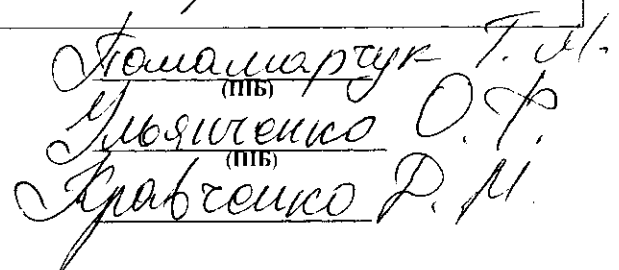 Паламарчук Т. М.
(ПІБ)
Ульянченко О. Ф.
(ПІБ)
Кравченко Р. М.